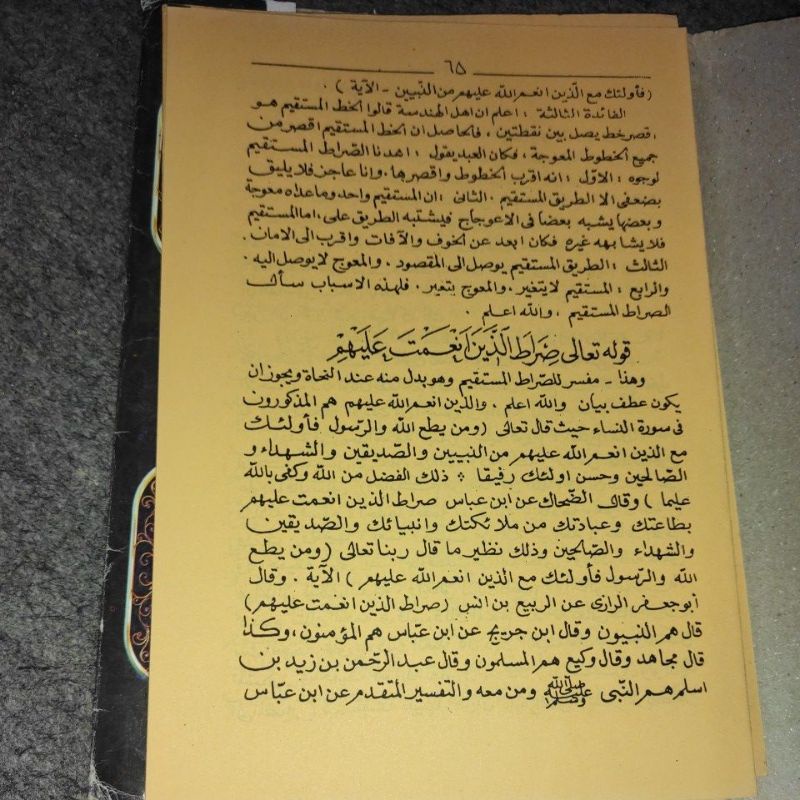 ٦٥
(فأولئك مع الّذين انعم الله عليهم من النّبيين - الآية) .
الفائدة الثالثة : اعلم ان اهل الهندسة قالوا الخط المستقيم هو
اقصر خط يصل بين نقطتين ، فالحاصل ان الخط المستقيم اقصر من
جميع الخطوط المعوجة ، فكان العبد يقول : اهدنا الصّراط المستقيم
لوجوه : الاوّل : انه اقرب الخطوط واقصرها، وانا عاجز فلا يليق
بضعفى الا الطريق المستقيم . الثانى : ان المستقيم واحد وما عداه معوجة
وبعضها يشبه بعضا فى الاعوجاج فيشتبه الطريق على، اما المستقيم
فلا يشابهه غيره فكان ابعد عن الخوف والآفات واقرب الى الامان.
الثالث : الطريق المستقيم يوصل الى المقصود ، والمعوج لا يوصل اليه .
والرابع : المستقيم لا يتغير ، والمعوج يتغير . فلهذه الاسباب سأل
الصراط المستقيم ، والله اعلم .
قوله تعالى صِرَاطَ الَّذِينَ اَنْعَمْتَ عَلَيْهِمْ
وهذا - مفسر للصّراط المستقيم وهو بدل منه عند النحاة ويجوز ان
يكون عطف بيان والله اعلم . والذين انعم الله عليهم هم المذكورون
فى سورة النساء حيث قال تعالى (ومن يطع الله والرّسول فأولئك
مع الذين انعم الله عليهم من النبيين والصّديقين والشهداء و
الصّالحين وحسن اولئك رفيقا * ذلك الفضل من الله وكفى بالله
عليما) وقال الضّحاك عن ابن عباس صراط الذين انعمت عليهم
بطاعتك وعبادتك من ملائكتك وانبيائك والصّديقين
والشهداء والصّالحين وذلك نظير ما قال ربنا تعالى (ومن يطع
الله والرّسول فأولئك مع الذين انعم الله عليهم) الآية . وقال
أبو جعفر الرازى عن الربيع بن انس (صراط الذين انعمت عليهم)
قال هم النبيون وقال ابن جريج عن ابن عبّاس هم المؤمنون، وكذا
قال مجاهد وقال وكيع هم المسلمون وقال عبد الرّحمن بن زيد بن
اسلم هم النّبى صلى الله عليه وسلم ومن معه والتفسير المتقدم عن ابن عبّاس